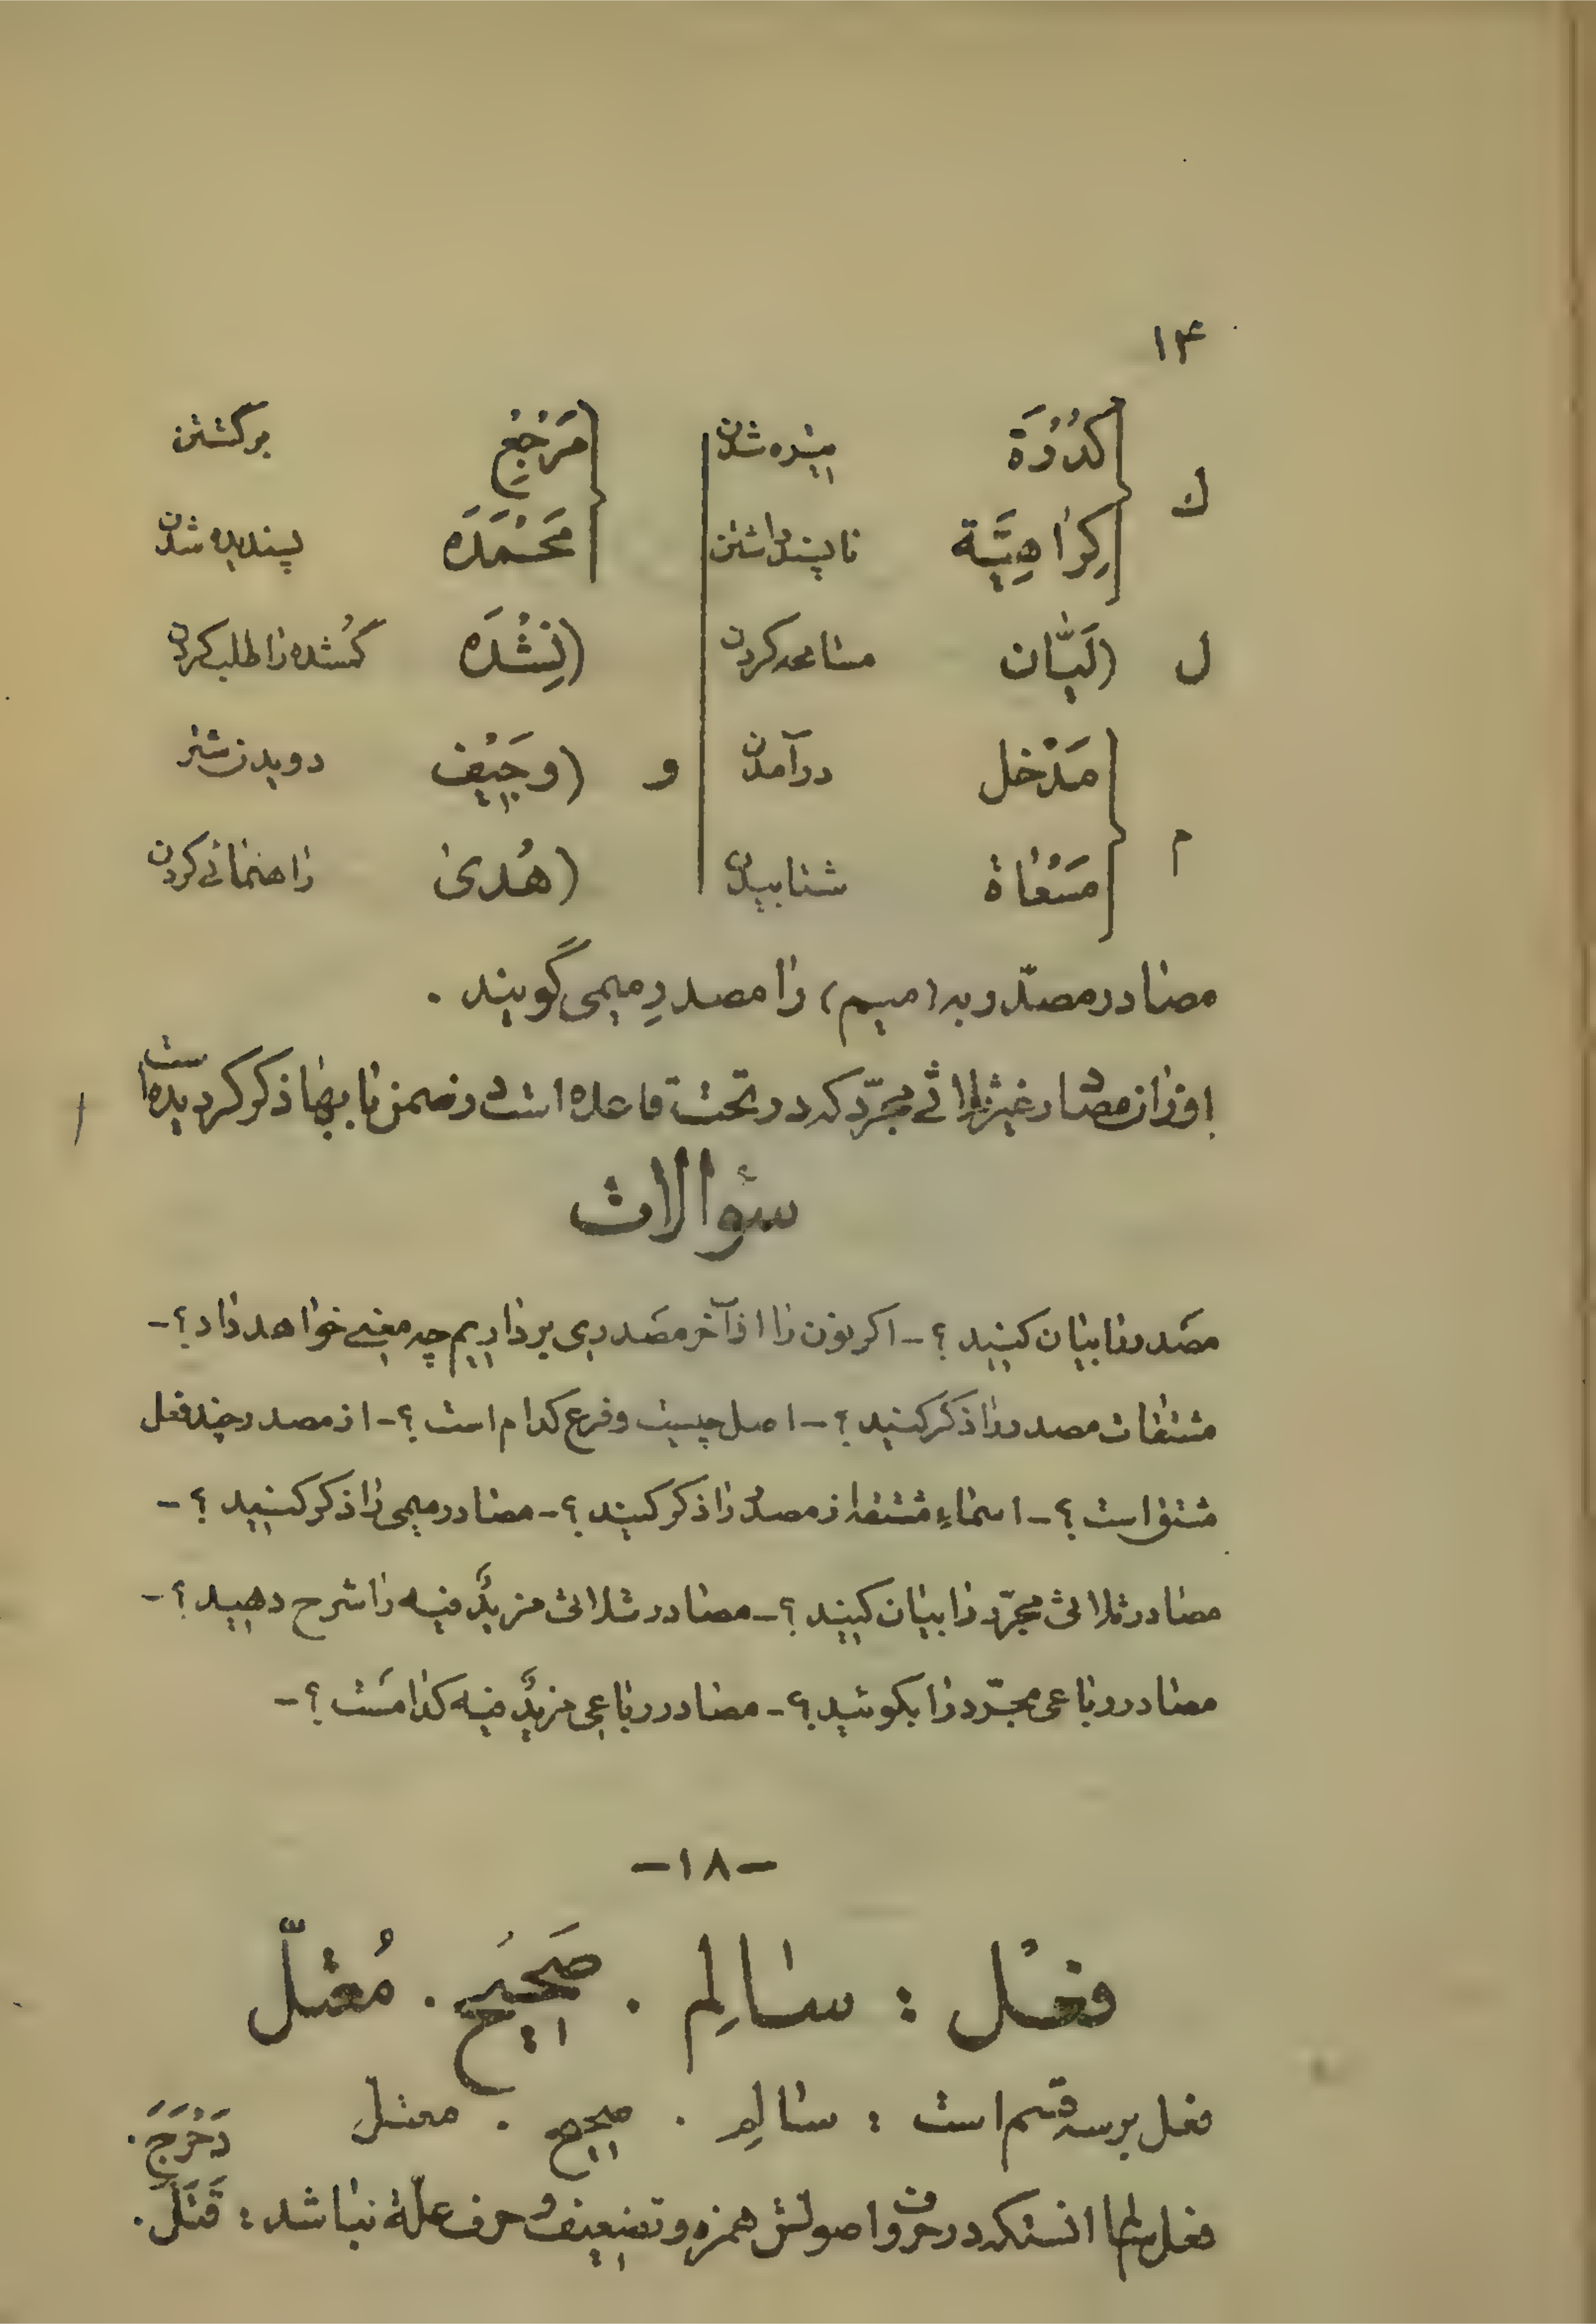 ۱۴
ك کُدُوْرَة تیره شدن مَرْجِع برگشتن
کِرَاهِیَّة ناپسند داشتن مَحْمَدَه پسندیده شدن
ل (لَیَّان مسامحه کردن (نِشْدَه گمشده را طلب کردن
م مَدْخل درآمدن و (وجَیْف دویدن شتر
مَسْعَاة شتابیدن (هُدیٰ راهنمائی کردن
مصادر مصدّر به (میم) را مصدرِ میمی گویند .
اوزان مصادر غیر ثلاثی مجرّد که در تحت قاعده است در ضمن بابها ذکر گردیده است
سؤالات
مصَدر را بیان کنید ؟ – اگر نون را از آخر مصَدری برداریم چه معنی خواهد داد ؟ –
مشتقات مصدر را ذکر کنید ؟ – اصل چیست و فرع کدام است ؟ – از مصدر چند فعل
مشتق است ؟ – اسماءِ مشتقه از مصدر را ذکر کنید ؟ – مصادر میمی را ذکر کنید ؟ –
مصادر ثلاثی مجرّد را بیان کنید ؟ – مصادر ثلاثی مزیدٌ فیه را شرح دهید ؟ –
مصادر رباعی مجرّد را بگوئید ؟ – مصادر رباعی مزیدٌ فیه کدامَست ؟ –
–۱۸–
فعْل : سالِم . صَحِیْح . مُعْتلّ
فعل بر سه قسم است : سالِم . صحیح . معتلّ
فعل سالم آنستکه در حروف اصولش همزه و تضعیف و حرف علّة نباشد : قَتَلَ . دَحْرَجَ .